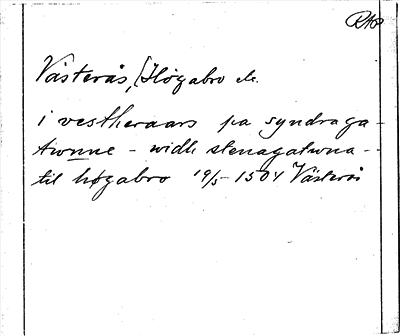 RAp
Västerås, Högabro etc.
i vestheraars pa syndraga-
twnne - widh stenagatwna --
til høgabro 19/5 1504 Västerås